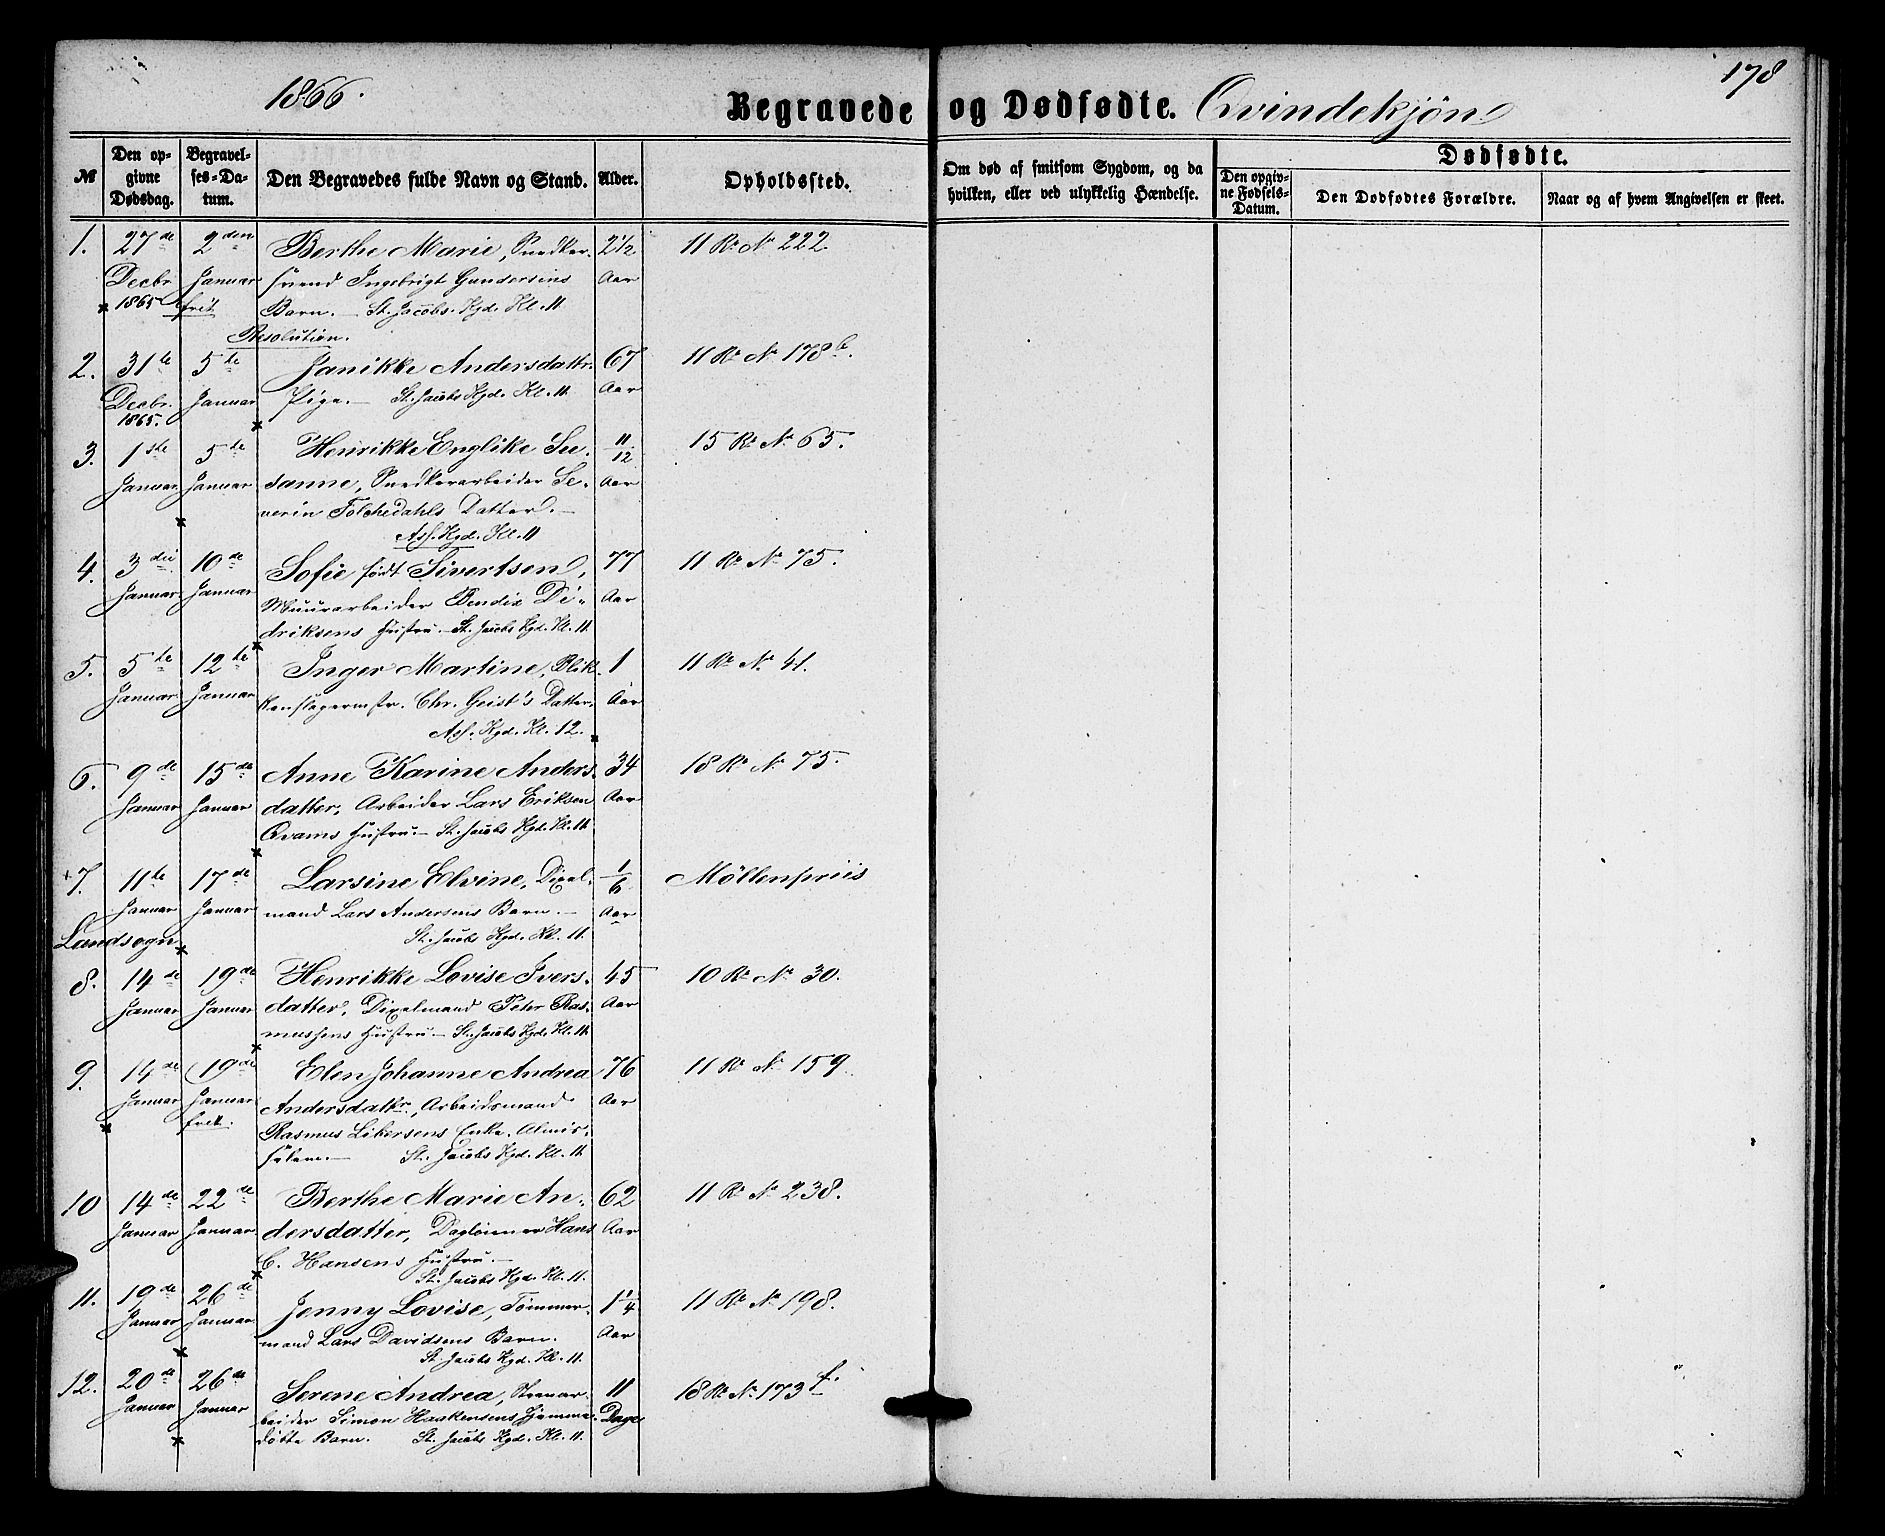 1866.
Begravede og Dødfødte. Qvindekjøn
178
№
Den opgivne Dødsdag.
Begravelses-Datum.
Den Begravedes fulde Navn og Stand.
Alder.
Opholdssted.
Om død af smitsom Sygdom, og da hvilken, eller ved ulykkelig Hændelse.
Dødfødte.
Den opgivne Fødsels-Datum.
Den Dødfødtes Forældre.
Naar og af hvem Angivelsen er skeet.
1. 27de 2den Berthe Marie, Snedker- 2½ 11 R. No 222.
Decbr Januar svend Ingebrigt Gundersens Aar
1865 frit Barn. — St. Jacobs. Kgd. Kl. 11
Resolution.
2. 31te 5te Janikke Andersdattr. 67 11 R. No 178 b.
Decbr. Januar Pige. — St. Jacobs Kgd. Kl. 11. Aar
1865.
3. 1ste 5te Henrikke Englike Su- 11/12 15 R. No 65.
Januar Januar sanne, Snedkerarbeider Se- Aar
verin Folchedahls Datter. —
Ass. Kgd. Kl. 11
4. 3die 10de Sofie født Sivertsen, 77 11 R. No 75.
Januar Januar Muurarbeider Bendix Di- Aar
driksens Hustru. — St. Jacobs Kgd. Kl. 11.
5. 5te 12te Inger Martine, Blik- 1 11 R. No 41.
Januar Januar kenslagermstr. Chr. Geist's Datter. Aar
Ass. Kgd. Kl. 12.
6. 9de 15de Anne Karine Anders- 34 18 R. No 75.
Januar Januar datter, Arbeider Lars Eriksen Aar
Qvams Hustru. — St. Jacobs Kgd. Kl. 11.
+7. 11te 17de Larsine Elvine, Dixel- 1/6 Möllenpriis
Januar Januar mand Lars Andersens Barn. — Aar
Landsogn St. Jacobs Kgd. Kl. 11.
8. 14de 19de Henrikke Lovise Ivers- 45 10 R. No 30.
Januar Januar datter, Dixelmand Peter Ras- Aar
mussens Hustru. — St. Jacobs Kgd. Kl. 11.
9. 14de 19de Elen Johanne Andrea 76 11 R. No 159.
Januar Januar Andersdattr., Arbeidsmand Aar
frit. Rasmus Libersens Enke. Almis-
selem. — St. Jacobs Kgd. Kl. 11.
10 14de 22de Berthe Marie An- 62 11 R. No 238.
Januar Januar dersdatter, Dagleiener Hans Aar
C. Hansens Hustru. —
St. Jacobs Kgd. Kl. 11.
11. 19de 26de Jenny Lovise, Tømmer- 1¼ 11 R. No 198.
Januar Januar mand Lars Davidsens Barn. Aar
St. Jacobs Kgd. Kl. 11.
12. 20de 26de Serene Andrea, Steenar- 11 18 R. No 173 f.
Januar Januar beider Simon Haakensens hjemme- Dage
døbte Barn. St. Jacobs Kgd. Kl. 11.